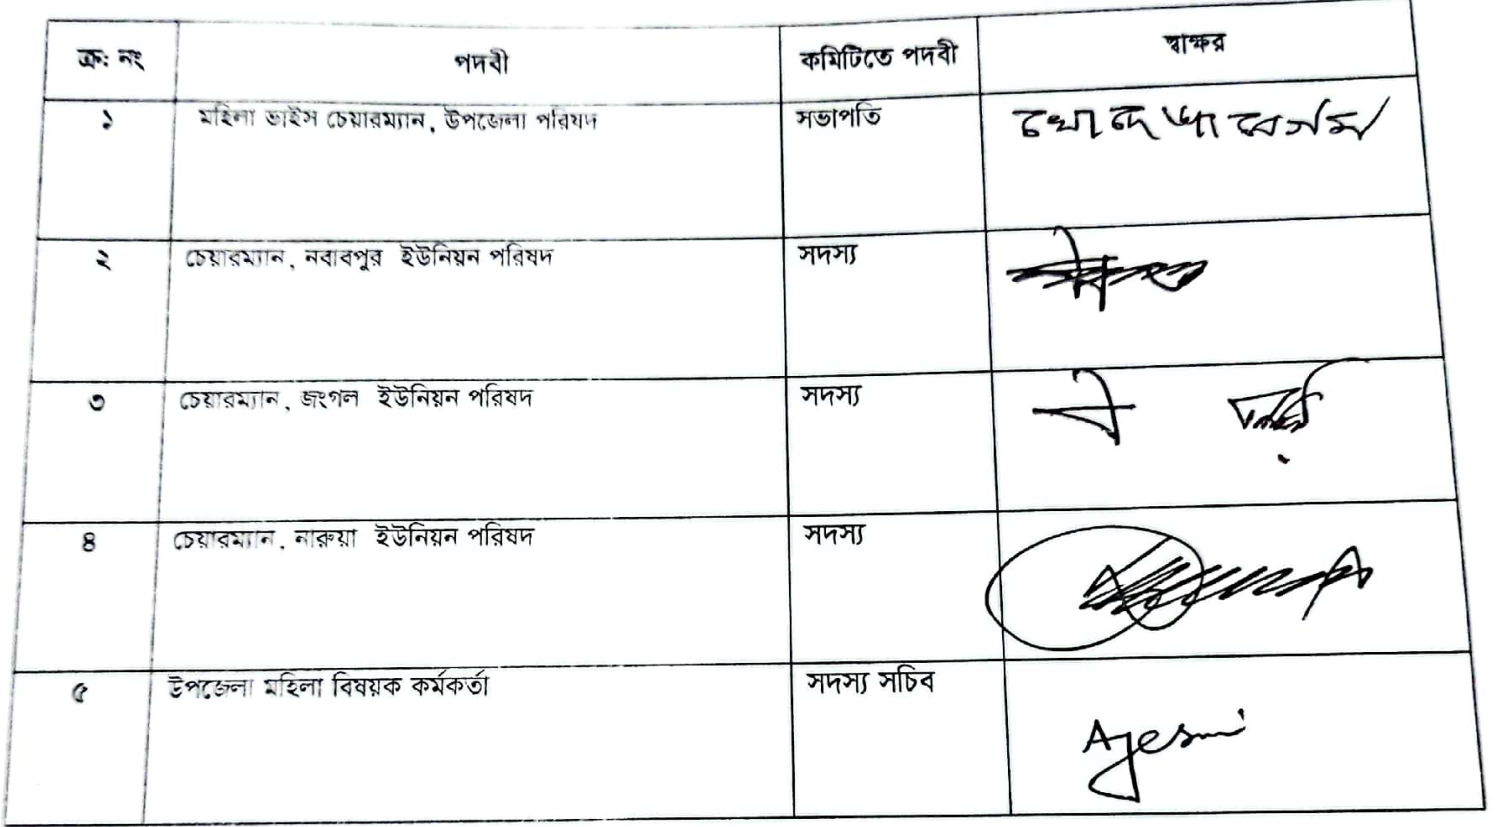 ক্র: নং পদবী কমিটিতে পদবী স্বাক্ষর
১ মহিলা ভাইস চেয়ারম্যান, উপজেলা পরিষদ সভাপতি খোদেজা বেগম
২ চেয়ারম্যান, নবাবপুর ইউনিয়ন পরিষদ সদস্য
৩ চেয়ারম্যান, জংগল ইউনিয়ন পরিষদ সদস্য
৪ চেয়ারম্যান, নারুয়া ইউনিয়ন পরিষদ সদস্য
৫ উপজেলা মহিলা বিষয়ক কর্মকর্তা সদস্য সচিব